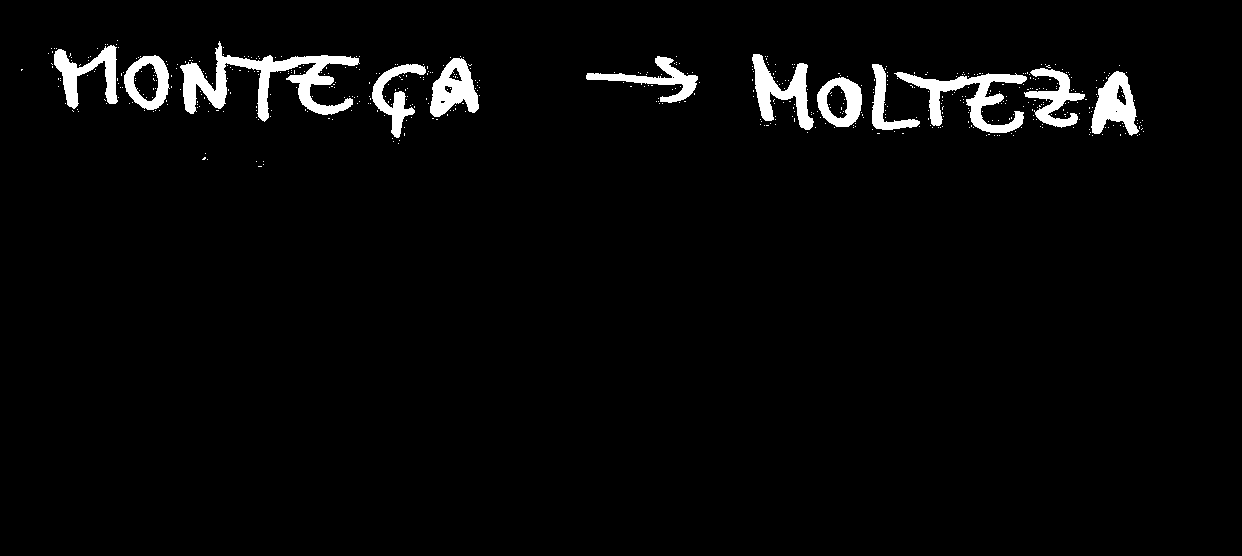 MONTEÇA → MOLTEZA